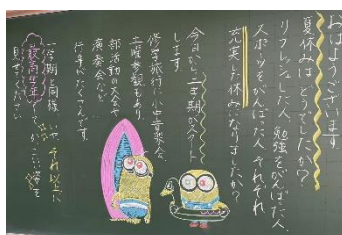 おはようございます
夏休みはどうでしたか?
リフレッシュした人、勉強をがんばった人、
スポーツをがんばった人、それぞれ
充実した休みになりましたか?
今日から二学期がスタート
します
修学旅行に小中音楽会、
土曜参観もあり、
部活動の大会や
演奏会など、
行事がたくさんです。
一学期と同様、
それ以上に
最高学年
かっこいい姿を
見せてください